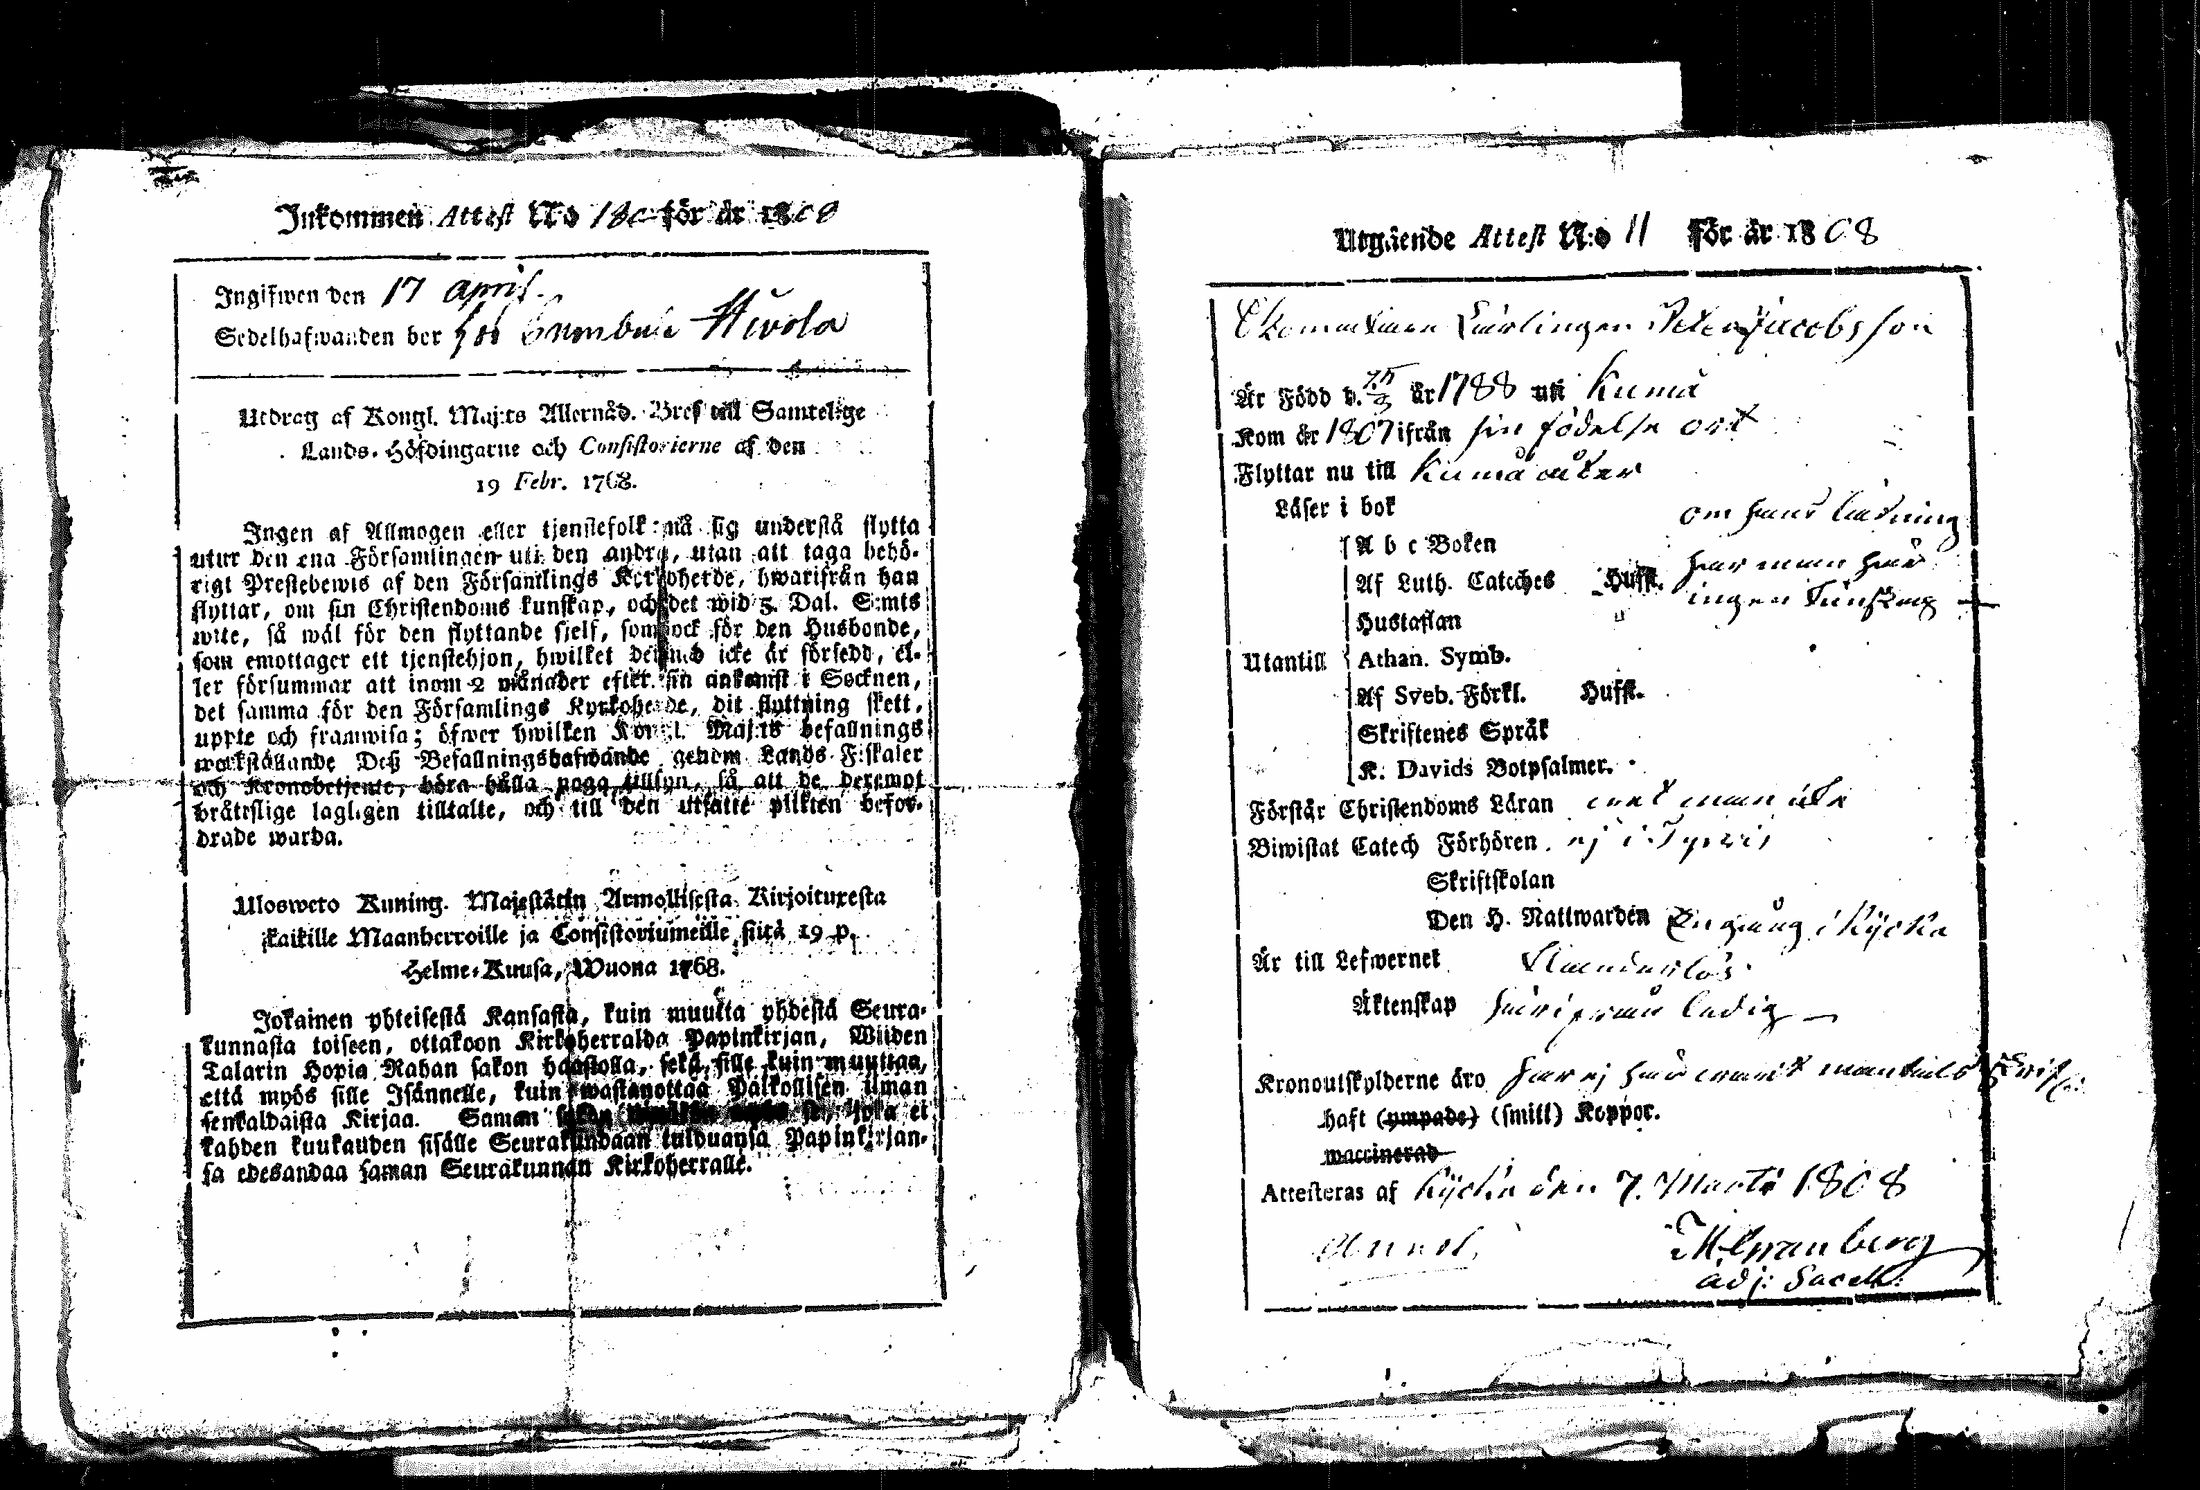 Inkommen Attest N:o 180 för år 1808
Ingifwen den 17 april.
Sedelhafwanden bor hos Hivola
Utdrag af Kongl. Maj:ts Allernåd. Bref till Samtelige
Lands-Höfdingarne och Consistorierne af den
19 Febr. 1768.
Ingen af Allmogen eller tjenstefolk må sig understå flytta
utur den ena Församlingen uti den andra, utan att taga behö-
rigt Prestebewis af den Församlings Kyrkoherde, hwarifrån han
flyttar, om sin Christendoms kunskap, och det wid 5. Dal. S:mts
wite, så wäl för den flyttande sjelf, som ock för den Husbonde,
som emottager ett tjenstehjon, hwilket dermed icke är försedd, el-
ler försummar att inom 2 månader efter sin ankomst i Socknen,
det samma för den Församlings Kyrkoherde, dit flyttning skett,
uppte och framwisa; öfwer hwilken Kongl. Maj:ts befallnings
werkställande Deß Befallningshafwande genom Lands-Fiskaler
och Kronobetjente, böra hålla noga tillsyn, så att de deremot
bråtsslige lagligen tilltalte, och till den utsatte plikten befor-
drade warda.
Uloswето Kuning. Majestätin Armollisesta Kirjoituxesta
kaikille Maanherroille ja Consistoriumeille siitä 19 p.
Helme-Kuusa, Wuona 1768.
Jokainen yhteisestä Kansasta, kuin muutta yhdestä Seura-
kunnasta toiseen, ottakoon Kirkoherralda Papinkirjan, Wiiden
Talarin Hopia Rahan sakon haastolla, sekä sille kuin muuttaa,
että myös sille Isännelle, kuin wastanottaa Palkollisen ilman
senkaldaista Kirjaa. Saman joka ei
kahden kuukauden sisälle Seurakundaan tulduansa Papinkirjan-
sa edesandaa saman Seurakunnan Kirkoherralle.
Utgående Attest N:o 11 för år 1808
Skomakare Lärlingen Peter Jacobsson
Är Född d. 25/3 år 1788 uti Kumå
Kom år 1807 ifrån sin födelse ort
Flyttar nu till Kumå åter
Läser i bok
om hans läsning
A b c Boken
har man här
Af Luth. Cateches Huffl.
ingen kunskap
Hustaflan
Utantill Athan. Symb.
Af Sveb. Förkl. Huffl.
Skriftenes Språk
K. Davids Botpsalmer.
Förstår Christendoms Läran wet man icke
Biwistat Catech Förhören ej i Tyrvis
Skriftskolan
Den H. Nattwarden En gång i Kycka
Är till Lefwernet klanderlös
Äktenskap härifrån ledig
Kronoutskylderne äro har ej här warit mantals skrifven
haft (ympade) (smitt) Koppor.
waccinerad
Attesteras af Kyckä den 7. Martii 1808
Granberg
adj: Sacell: